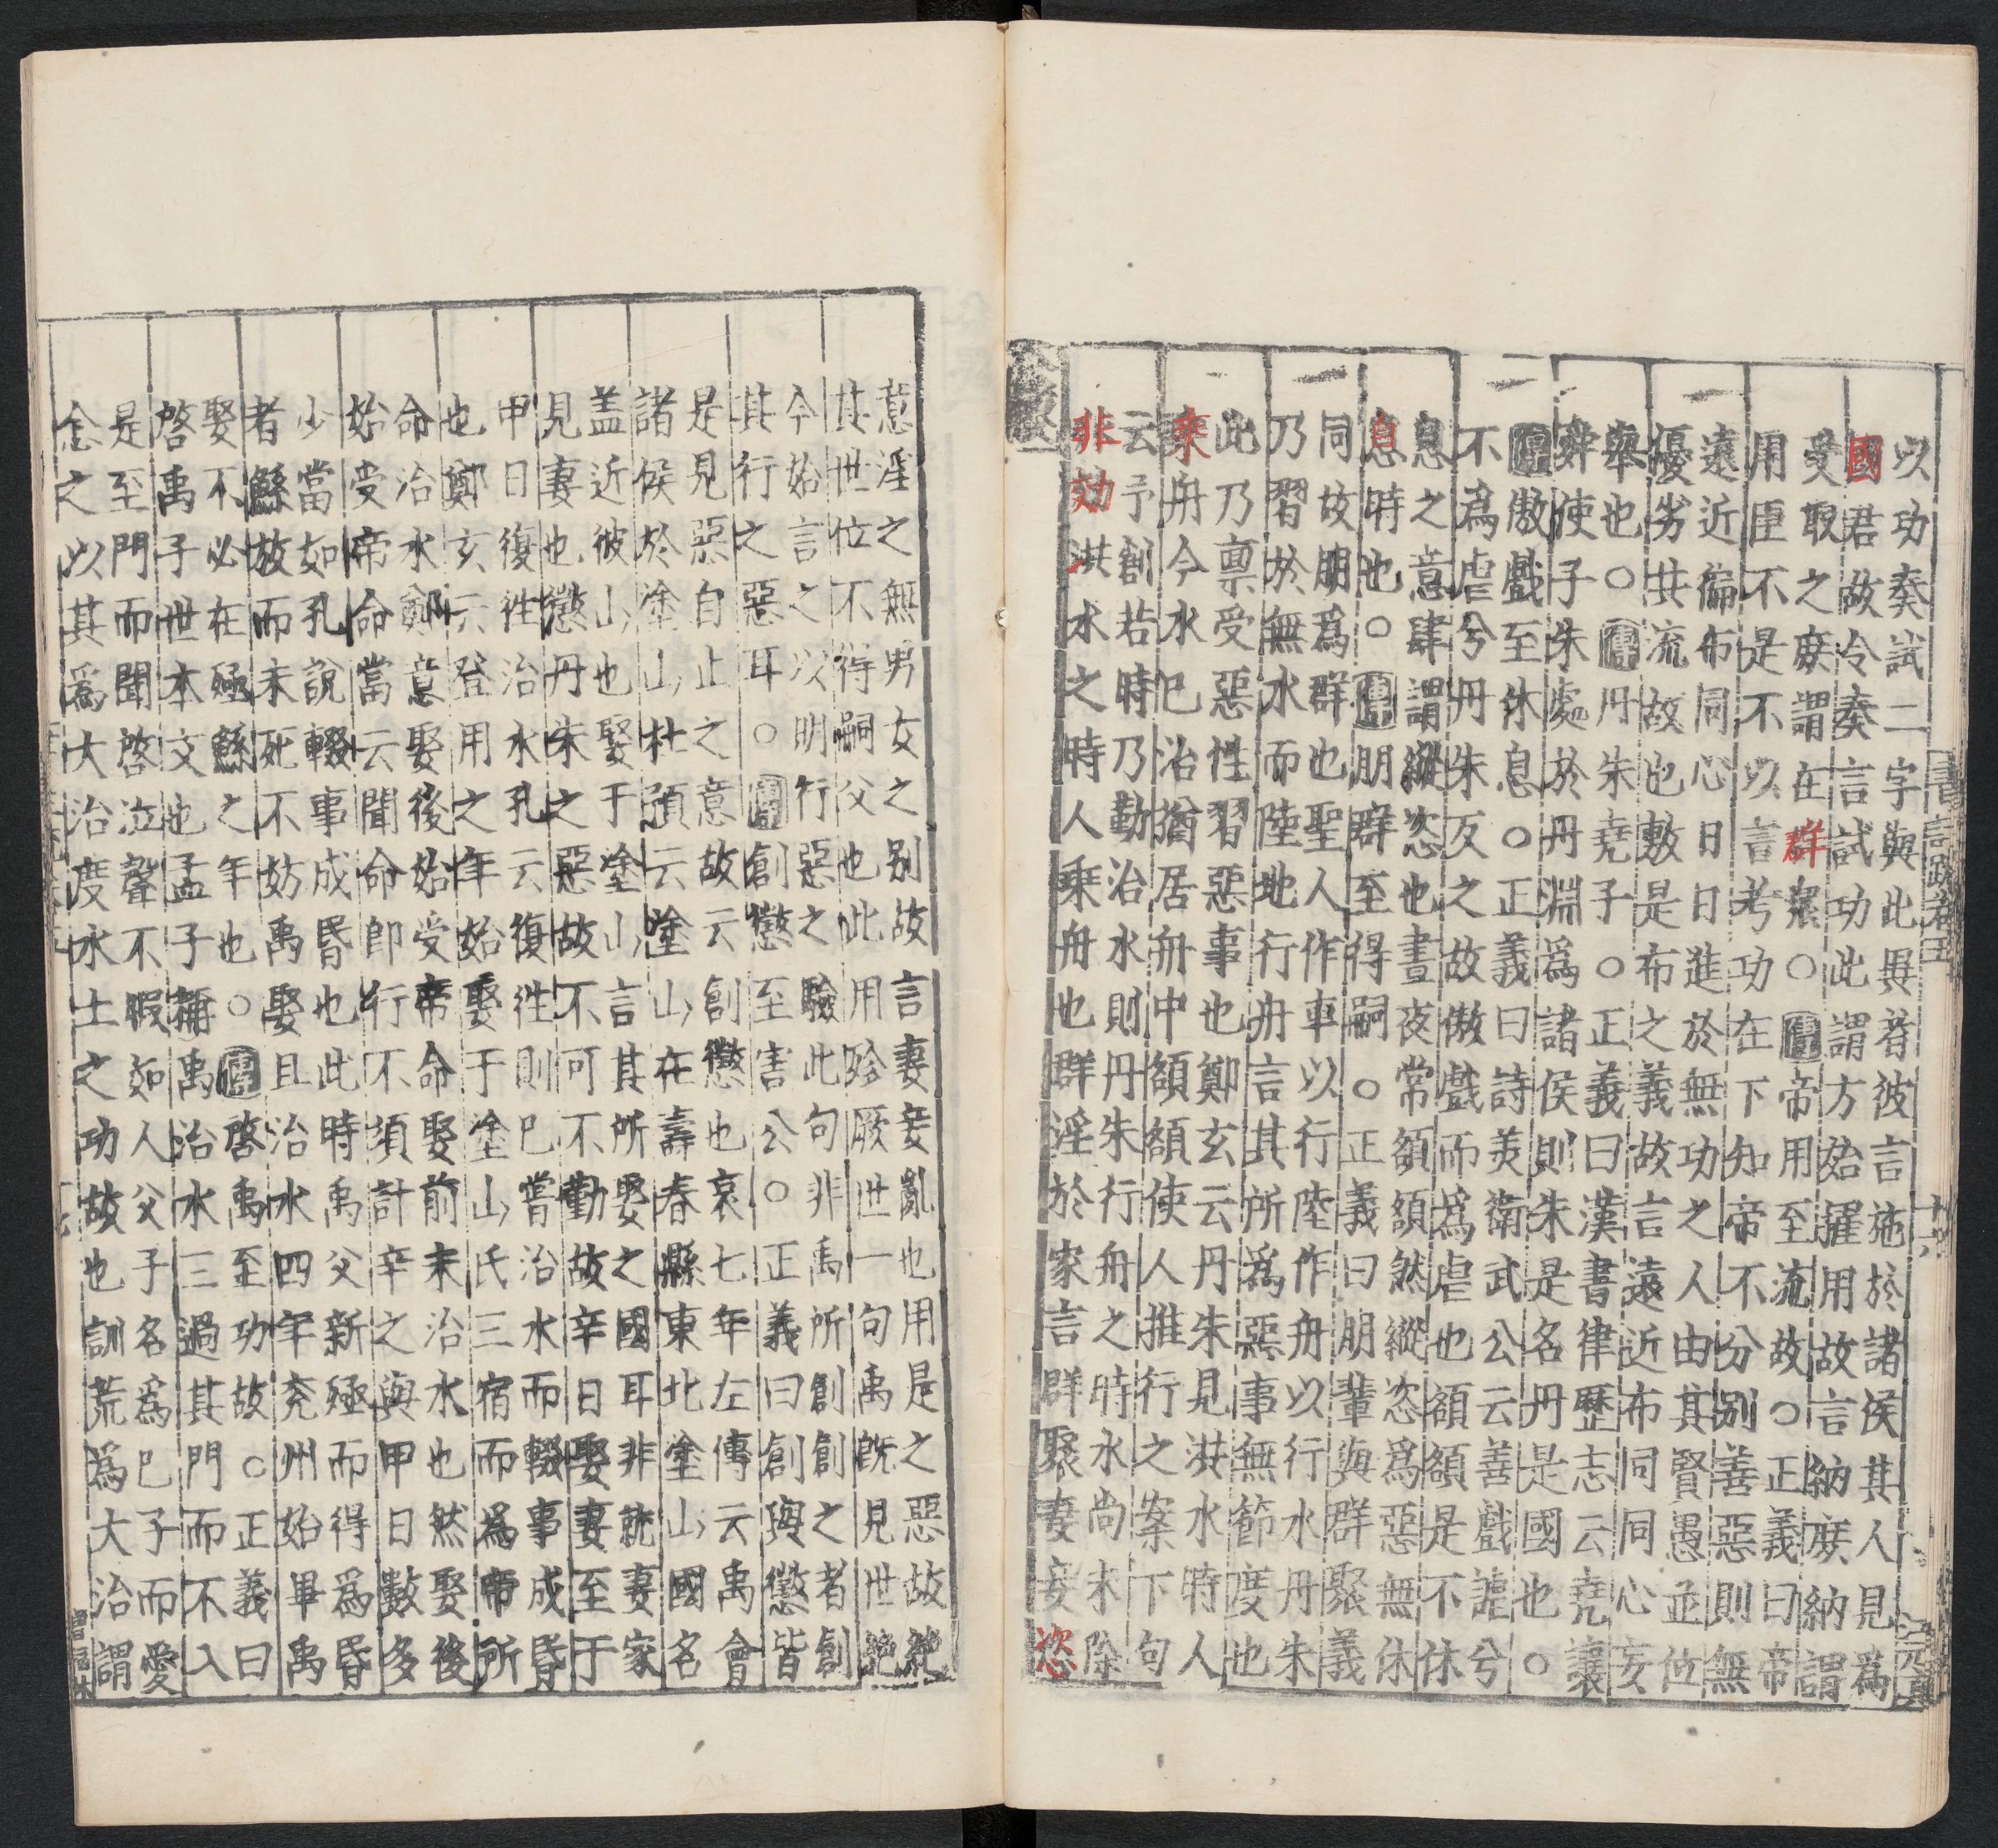 書註疏卷五
十六
以功奏試二字與此異者彼言施於諸侯其人見為
國君故令奏言試功此謂方始擢用故言納庶納謂
受取之庶謂在群衆○傳帝用至流故○正義曰帝
用臣不是不以言考功在下知帝不分別善惡則無
遠近徧布同心日日進於無功之人由其賢愚並位
優劣共流故也敷是布之義故言遠近布同同心妄
舉也○傳丹朱堯子○正義曰漢書律歷志云堯讓
舜使子朱處於丹淵為諸侯則朱是名丹是國也○
傳傲戲至休息○正義曰詩美衛武公云善戲謔兮
不為虐兮丹朱反之故傲戲而為虐也額額是不休
息之意肆謂縱恣也晝夜常額額然縱恣為惡無休
息時也○傳朋群至得嗣○正義曰朋輩與群聚義
同故朋為群也聖人作車以行陸作舟以行水丹朱
乃習於無水而陸地行舟言其所為惡事無節度也
此乃稟受惡性習惡事也鄭玄云丹朱見洪水時人
乘舟今水已治猶居舟中額額使人推行之案下句
云予創若時乃勤治水則丹朱行舟之時水尚未除
非効洪水之時人乘舟也群淫於家言群聚妻妾恣
意淫之無男女之別故言妻妾亂也用是之惡故絶
其世位不得嗣父也此用殄厥世一句禹既見世絶
今始言之以明行惡之驗此句非禹所創創之者創
其行之惡耳○傳創懲至害公○正義曰創與懲皆
是見惡自止之意故云創懲也哀七年左傳云禹會
諸侯於塗山杜預云塗山在壽春縣東北塗山國名
盖近彼山也娶于塗山言其所娶之國耳非就妻家
見妻也懲丹朱之惡故不可不勤故辛日娶妻至于
甲日復往治水孔云復往則已嘗治水而輟事成昏
也鄭玄云登用之年始娶于塗山氏三宿而為帝所
命治水鄭意娶後始受帝命娶前未治水也然娶後
始受帝命當云聞命即行不須計辛之與甲日數多
少當如孔說輟事成昏也此時禹父新殛而得為昏
者鯀放而未死不妨禹娶且治水四年兖州始畢禹
娶不必在殛鯀之年也○傳啓禹至功故○正義曰
啓禹子世本文也孟子稱禹治水三過其門而不入
是至門而聞啓泣聲不暇如人父子名為己子而愛
念之以其為大治度水土之功故也訓荒為大治謂